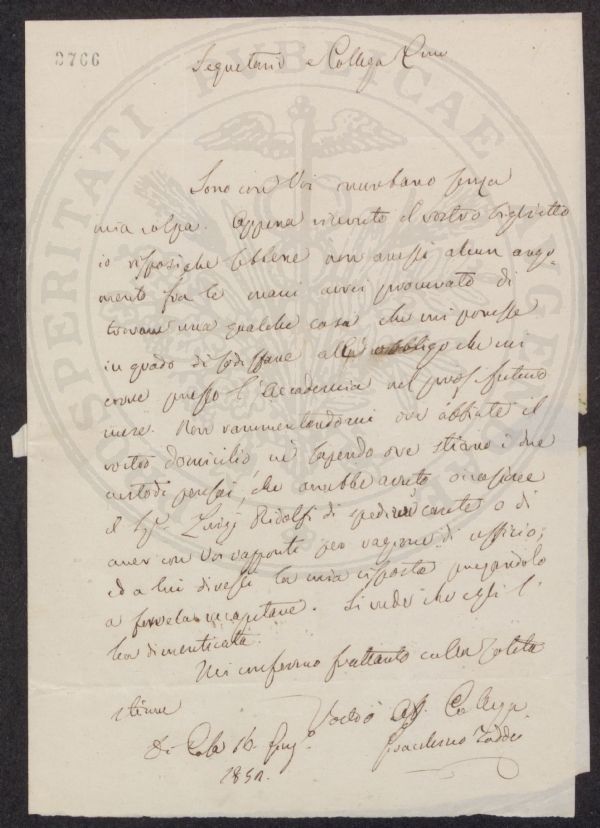 3766
Segretario e Collega Cmo
Sono con Voi incurbano senza
mia colpa. Appena ricevuto il vostro biglietto
io risposi che sebbene non avessi alcun argo-
mento fra le mani avrei procurato di
trovare una qualche cosa che mi ponesse
in grado di sodisfare all' obbligo che mi
corre presso l'Accademia nel pross. futuro
mese. Non rammentandomi ove abbiate il
vostro domicilio nè sapendo ove stiano i due
custodi pensai, che avrebbe avuto occasione
il Sig. Luigi Ridolfi di spedirvi carte o di
aver con Voi rapporti per ragione di ufficio;
ed a lui diressi la mia risposta pregandolo
a farvela recapitare. Si vede che egli l'
ha dimenticata.
Mi confermo frattanto colla solita
stima
Vostro Aff. Collega
Di Casa 16. Giug.
Gioacchino Taddei